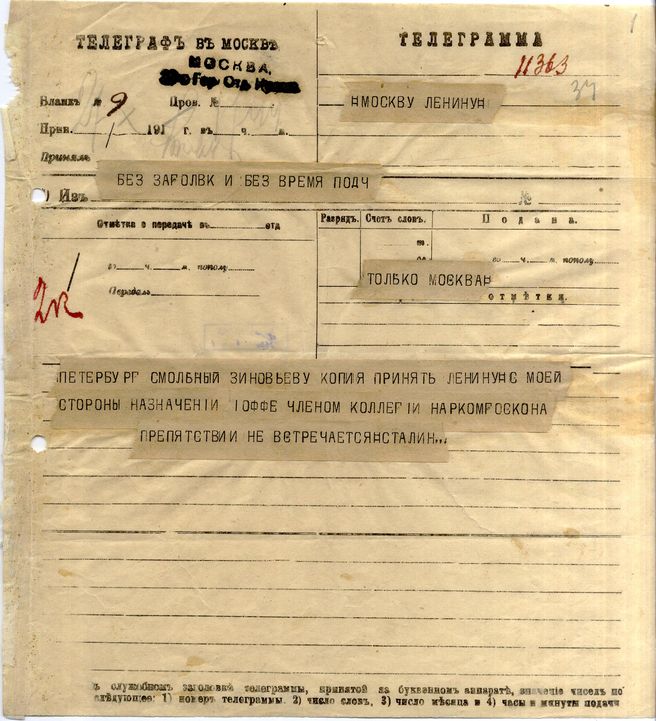 ТЕЛЕГРАФЪ ВЪ МОСКВѢ
МОСКВА,
Бланкъ № 9 Пров. №
Прин. 191 г. въ ч. м.
Принялъ
ТЕЛЕГРАММА
11363
37
¤МОСКВУ ЛЕНИНУ¤
БЕЗ ЗАГОЛВК И БЕЗ ВРЕМЯ ПОДЧ
Изъ №
Отмѣтка о передачѣ въ отд
ч. м. пополу
Передалъ
2к
Разрядъ. Счетъ словъ. Подана.
го. во ч. м. пополу
ТОЛЬКО МОСКВА¤
ОТМѢТКИ.
ПЕТЕРБУРГ СМОЛЬНЫЙ ЗИНОВЬЕВУ КОПИЯ ПРИНЯТЬ ЛЕНИНУ¤С МОЕЙ
СТОРОНЫ НАЗНАЧЕНІИ IОФФЕ ЧЛЕНОМ КОЛЛЕГІИ НАРКОМГОСКОНА
ПРЕПЯТСТВИИ НЕ ВСТРЕЧАЕТСЯ¤СТАЛИН
служебномъ заголовкѣ телеграммы, принятой на буквенномъ аппаратѣ, значеніе чиселъ по
слѣдующее: 1) номеръ телеграммы. 2) число словъ, 3) число мѣсяца и 4) часы и минуты подачи